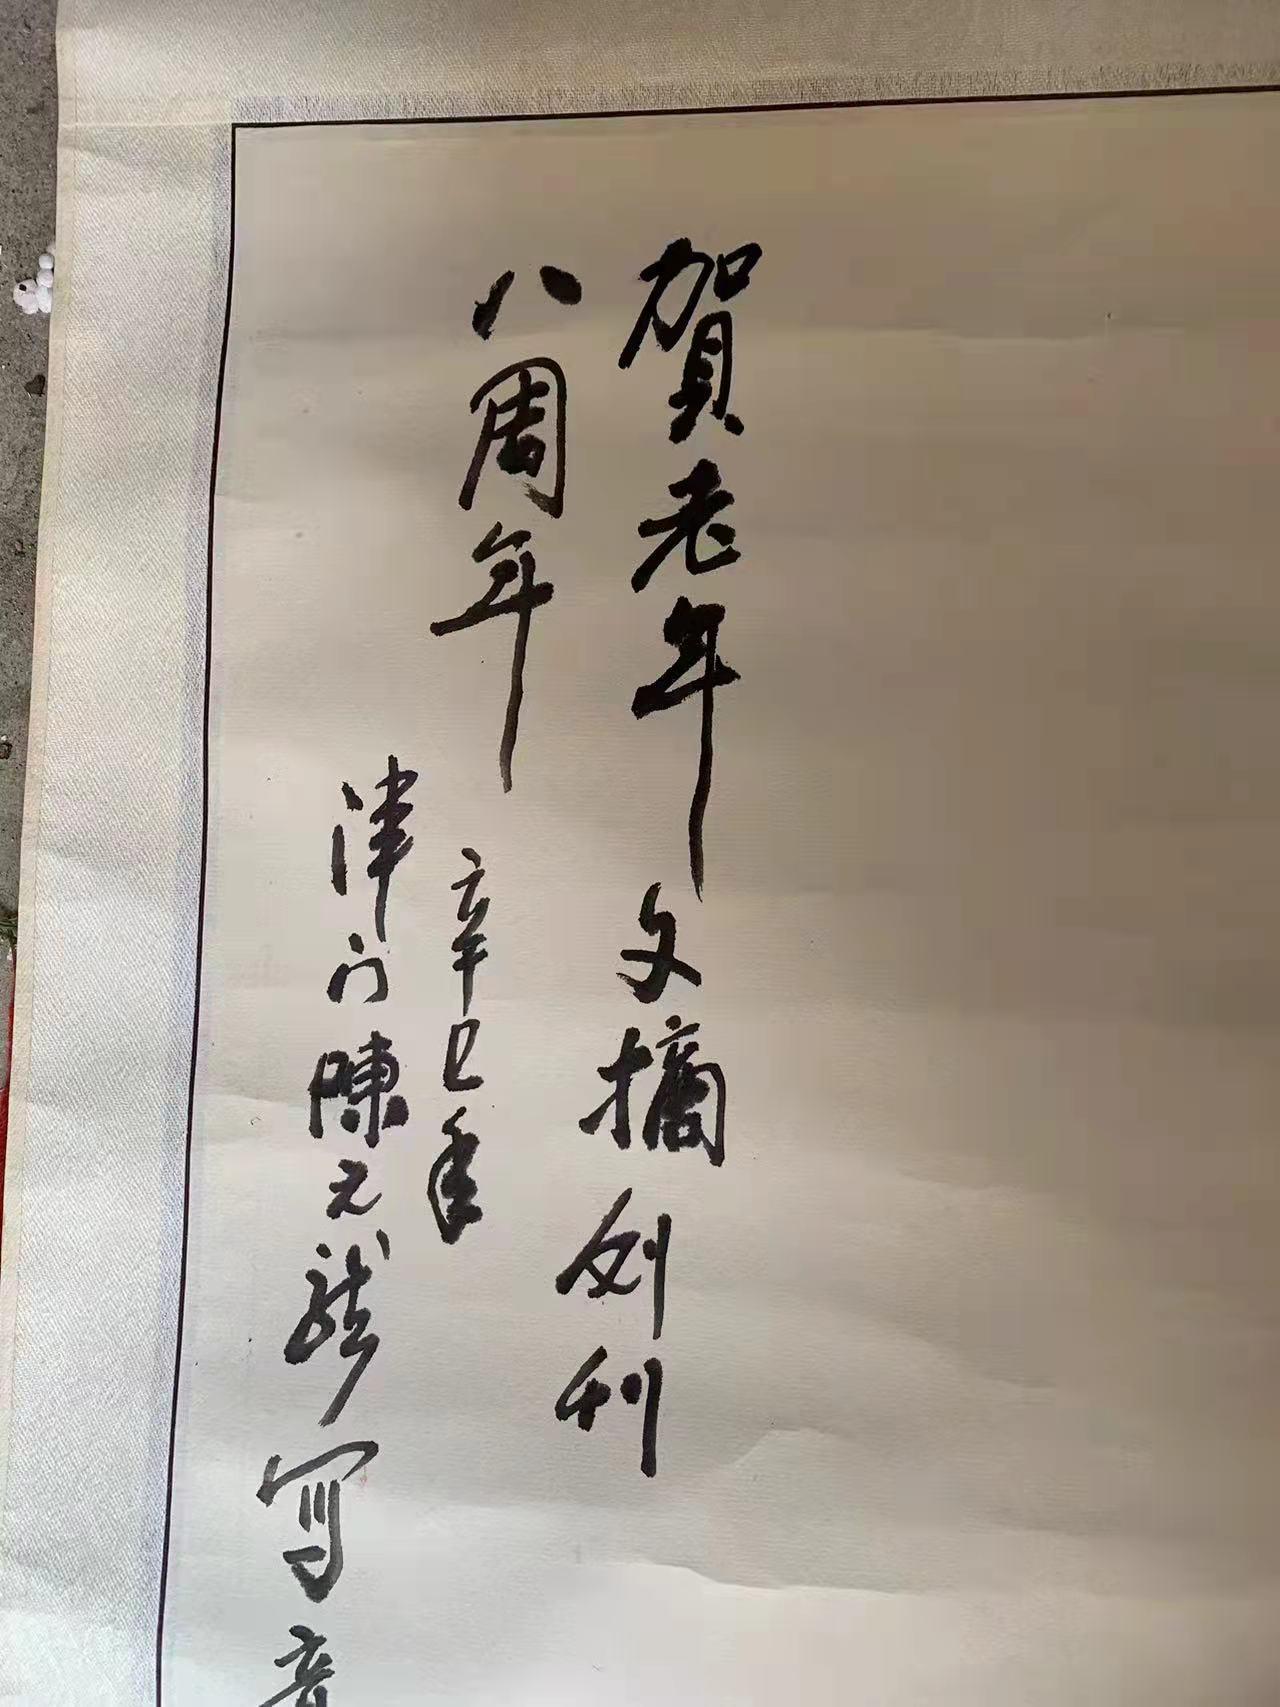 賀老年文摘创刊
八周年
辛巳年
津门陳元龙写意